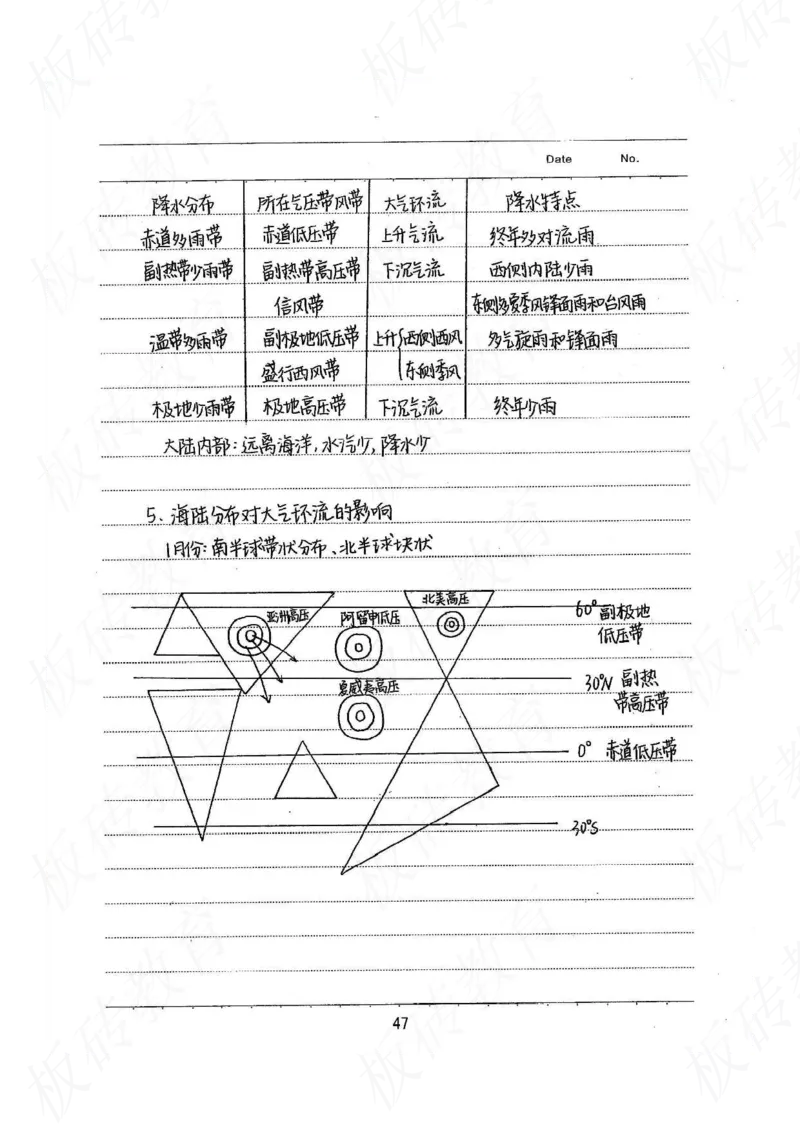 Date No.
降水分布 所在气压带风带 大气环流 降水特点
赤道多雨带 赤道低压带 上升气流 终年多对流雨
副热带少雨带 副热带高压带 下沉气流 西侧内陆少雨
信风带 东侧多夏季风锋面雨和台风雨
温带多雨带 副极地低压带 上升{西侧西风 多气旋雨和锋面雨
盛行西风带 东侧季风
极地少雨带 极地高压带 下沉气流 终年少雨
大陆内部:远离海洋,水汽少,降水少
5、海陆分布对大气环流的影响
1月份:南半球带状分布、北半球块状
北美高压
亚洲高压 阿留申低压 60° 副极地
低压带
30°N 副热
夏威夷高压 带高压带
0° 赤道低压带
30°S
47
板砖教育